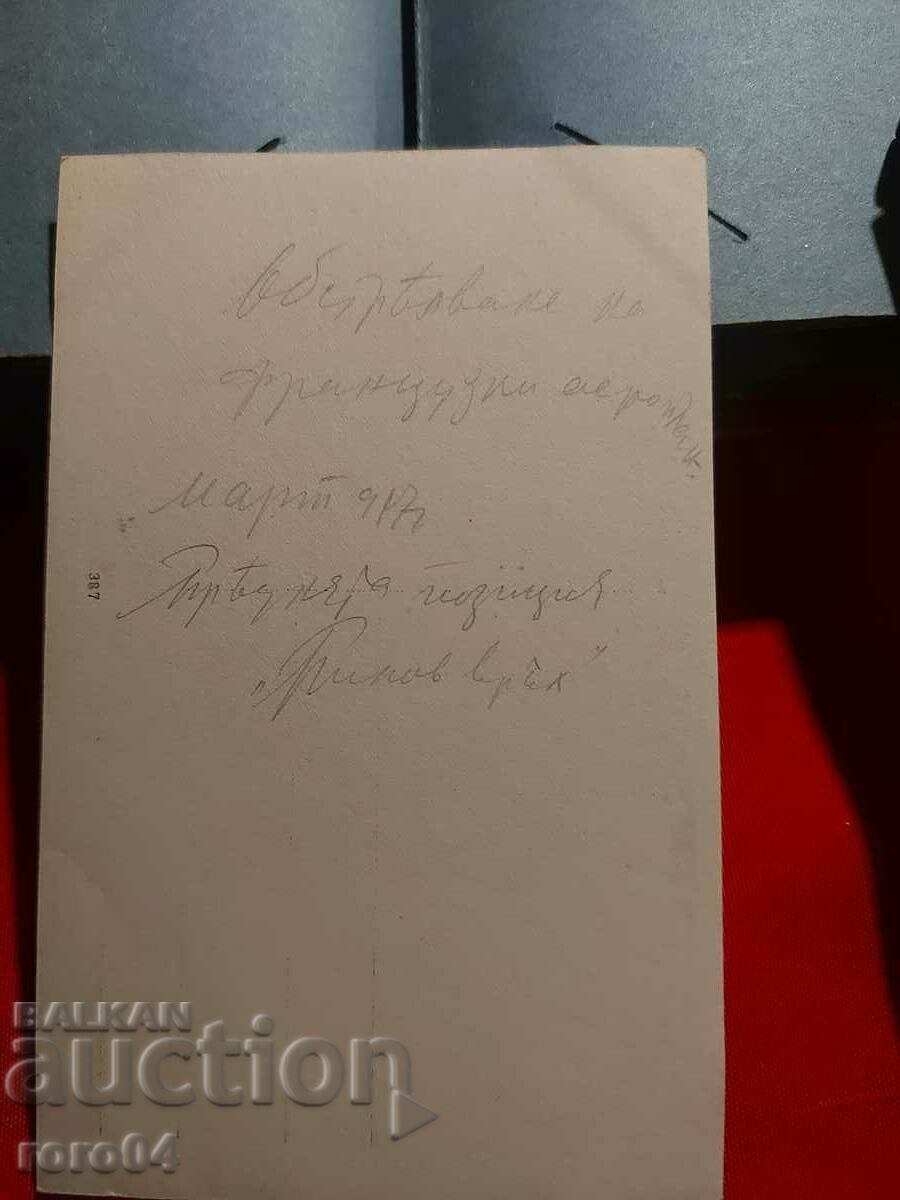 Обстрѣлване на
французки аероплан.
Мартъ 917
Прѣдната позиция
„ връх"
387
BALKAN
auction
roro04